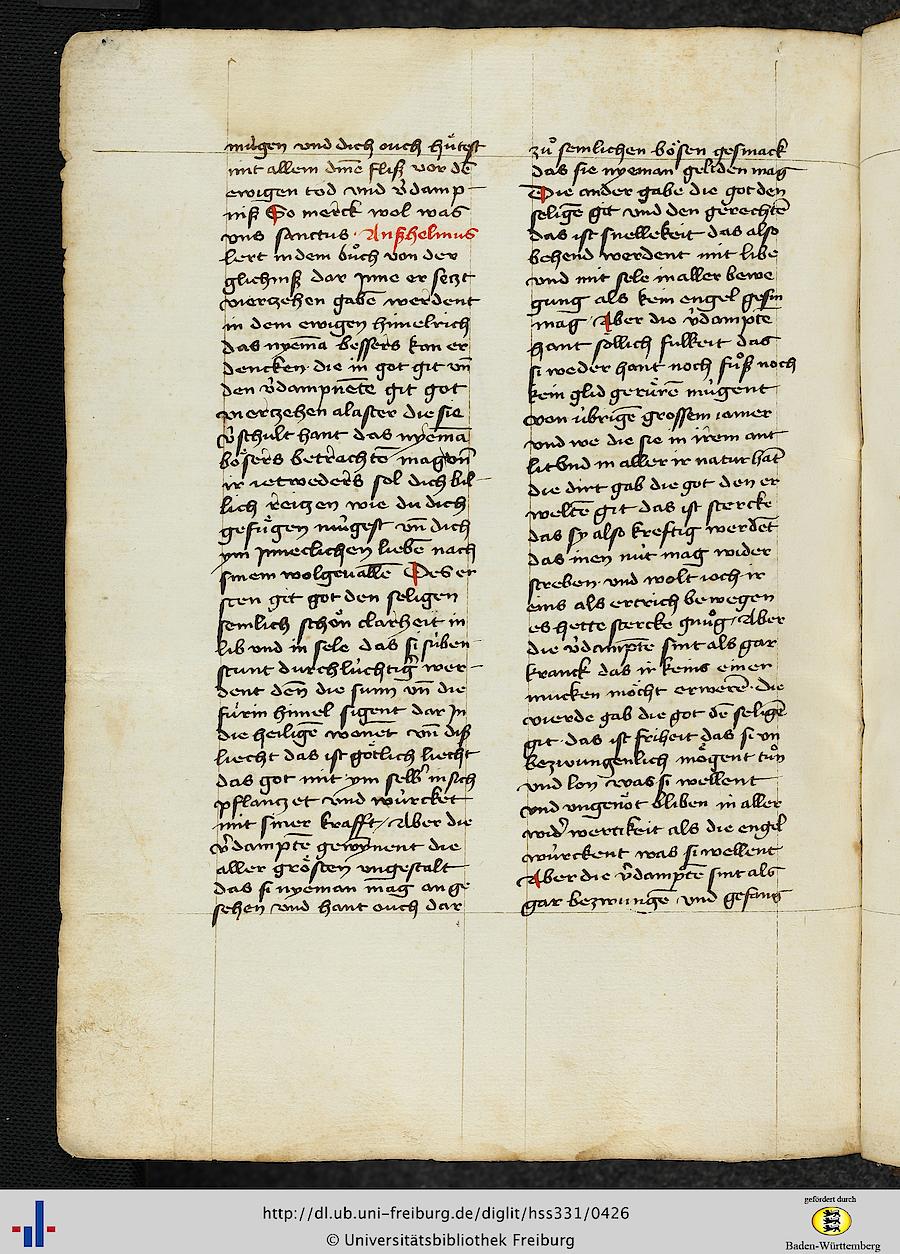 mügen vnd dich ouch hütest
mit allem dinē fliß vor dē
ewigen tod vnd v̓damp-
niß So merck wol was
vns sanctus · Anßhelmus
lert in dem bůch von der
glichniß dar jnne er setzt
vierzehen gabē werdent
in dem ewigen himelrich
das nyemā bessers kan er
dencken · die in got git vn̄
den v̓dampnetē git got
vierzehen alaster die sie
v̓schult hant das nyemā
bösers betrachtē mag vn̄
ir ietweders sol dich bil-
lich reitzen wie du dich
gefügen mügest vn̄ dich
ym jnneclichen liebē nach
sinem wolgeuallē Des er
sten git got den seligen
semlich schön clarheit in
lib vnd in sele das si siben
stunt durchlüchtig̓ wer-
dent den̄ die sunn vn̄ die
für in himel sigent dar jn
die heiligē wonet vn̄ diß
liecht das ist götlich liecht
das got mit ym selb̓ in sich
pflanczet vnd würcket
mit siner krafft / Aber die
v̓damptē gewynent die
aller grösten vngestalt
das si nyeman mag an ge
sehen vnd hant ouch dar
zů semlichen bösen gesmack
das sie nyeman geliden mag
Die ander gabe die got den
seligē git vnd den gerechtē
das ist snellekeit das also
behend werdent mit libe
vnd mit sele in aller bewe
gung als kein engel gesin
mag · Aber die v̓damptē
hant söllich fulkeit das
si weder hant noch fůß noch
kein glid gerürē mügent
von übrigē grossem iamer
vnd we die sie in irem ant
lit vnd in aller ir natur hāt
die dirt gab die got den er
weltē git das ist stercke
das sy also kreftig werdēt
das inen nüt mag wider
streben · vnd wolt ioch ir
eins als ertrich bewegen
es hette stercke gnůg · Aber
die v̓damptē sint als gar
kranck das ir keins einer
mucken möcht erwerē · die
vierde gab die got dē seligē
git · das ist friheit das si vn
bezwungenlich mögent tůn
vnd lon was si wellent
vnd vngenöt bliben in aller
wid̓ wertikeit als die engel
würckent was si wellent
Aber die v̓damptē sint als
gar bezwungē · vnd gefang
http://dl.ub.uni-freiburg.de/diglit/hss331/0426
© Universitätsbibliothek Freiburg
gefördert durch
Baden-Württemberg